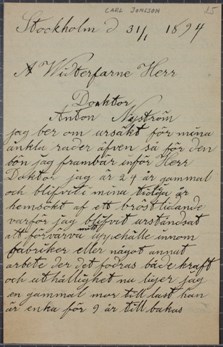 CARL JONSSON
Stockholm d 31/1 1894
Herr
Doktor
Anton Nyström
jag ber om ursäkt för mina
enkla rader äfven så för den
bön jag frambär enför Herr
Doktor jag är 29 år gammal
och blifvit i mina år
hemsökt af ett bröstlidande
varför jag blifvit urståndsat
att förvärva innom
fabriker eller något annat
arbete der det fodras både kraft
och uthållighet nu äger jag
en gammal mor till last han
är enka för 9 år till bakas